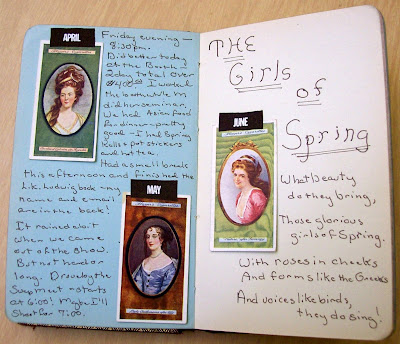 APRIL
Friday evening —
8:30 pm.
Bid better today
at the Booth —
2 day total over
I worked
the booth while M
did her seminar.
We had Asian Food
for dinner - pretty
good - I had Spring
Rolls & pot stickers
and hot tea.
Had a small break
this afternoon and finished the
Lik. Ludwig book - my
name and email
are in the back!
MAY
It rained a bit
when we came
out of the show.
But not hard or
long. Drove by the
Swap meet - starts
at 6:00! Maybe I'll
Shoot for 7:00.
THE
Girls
of
Spring
JUNE
What Beauty
do they bring,
Those glorious
girls of Spring.
With roses in cheeks
And forms like the Greeks
And voices like birds,
they do sing!